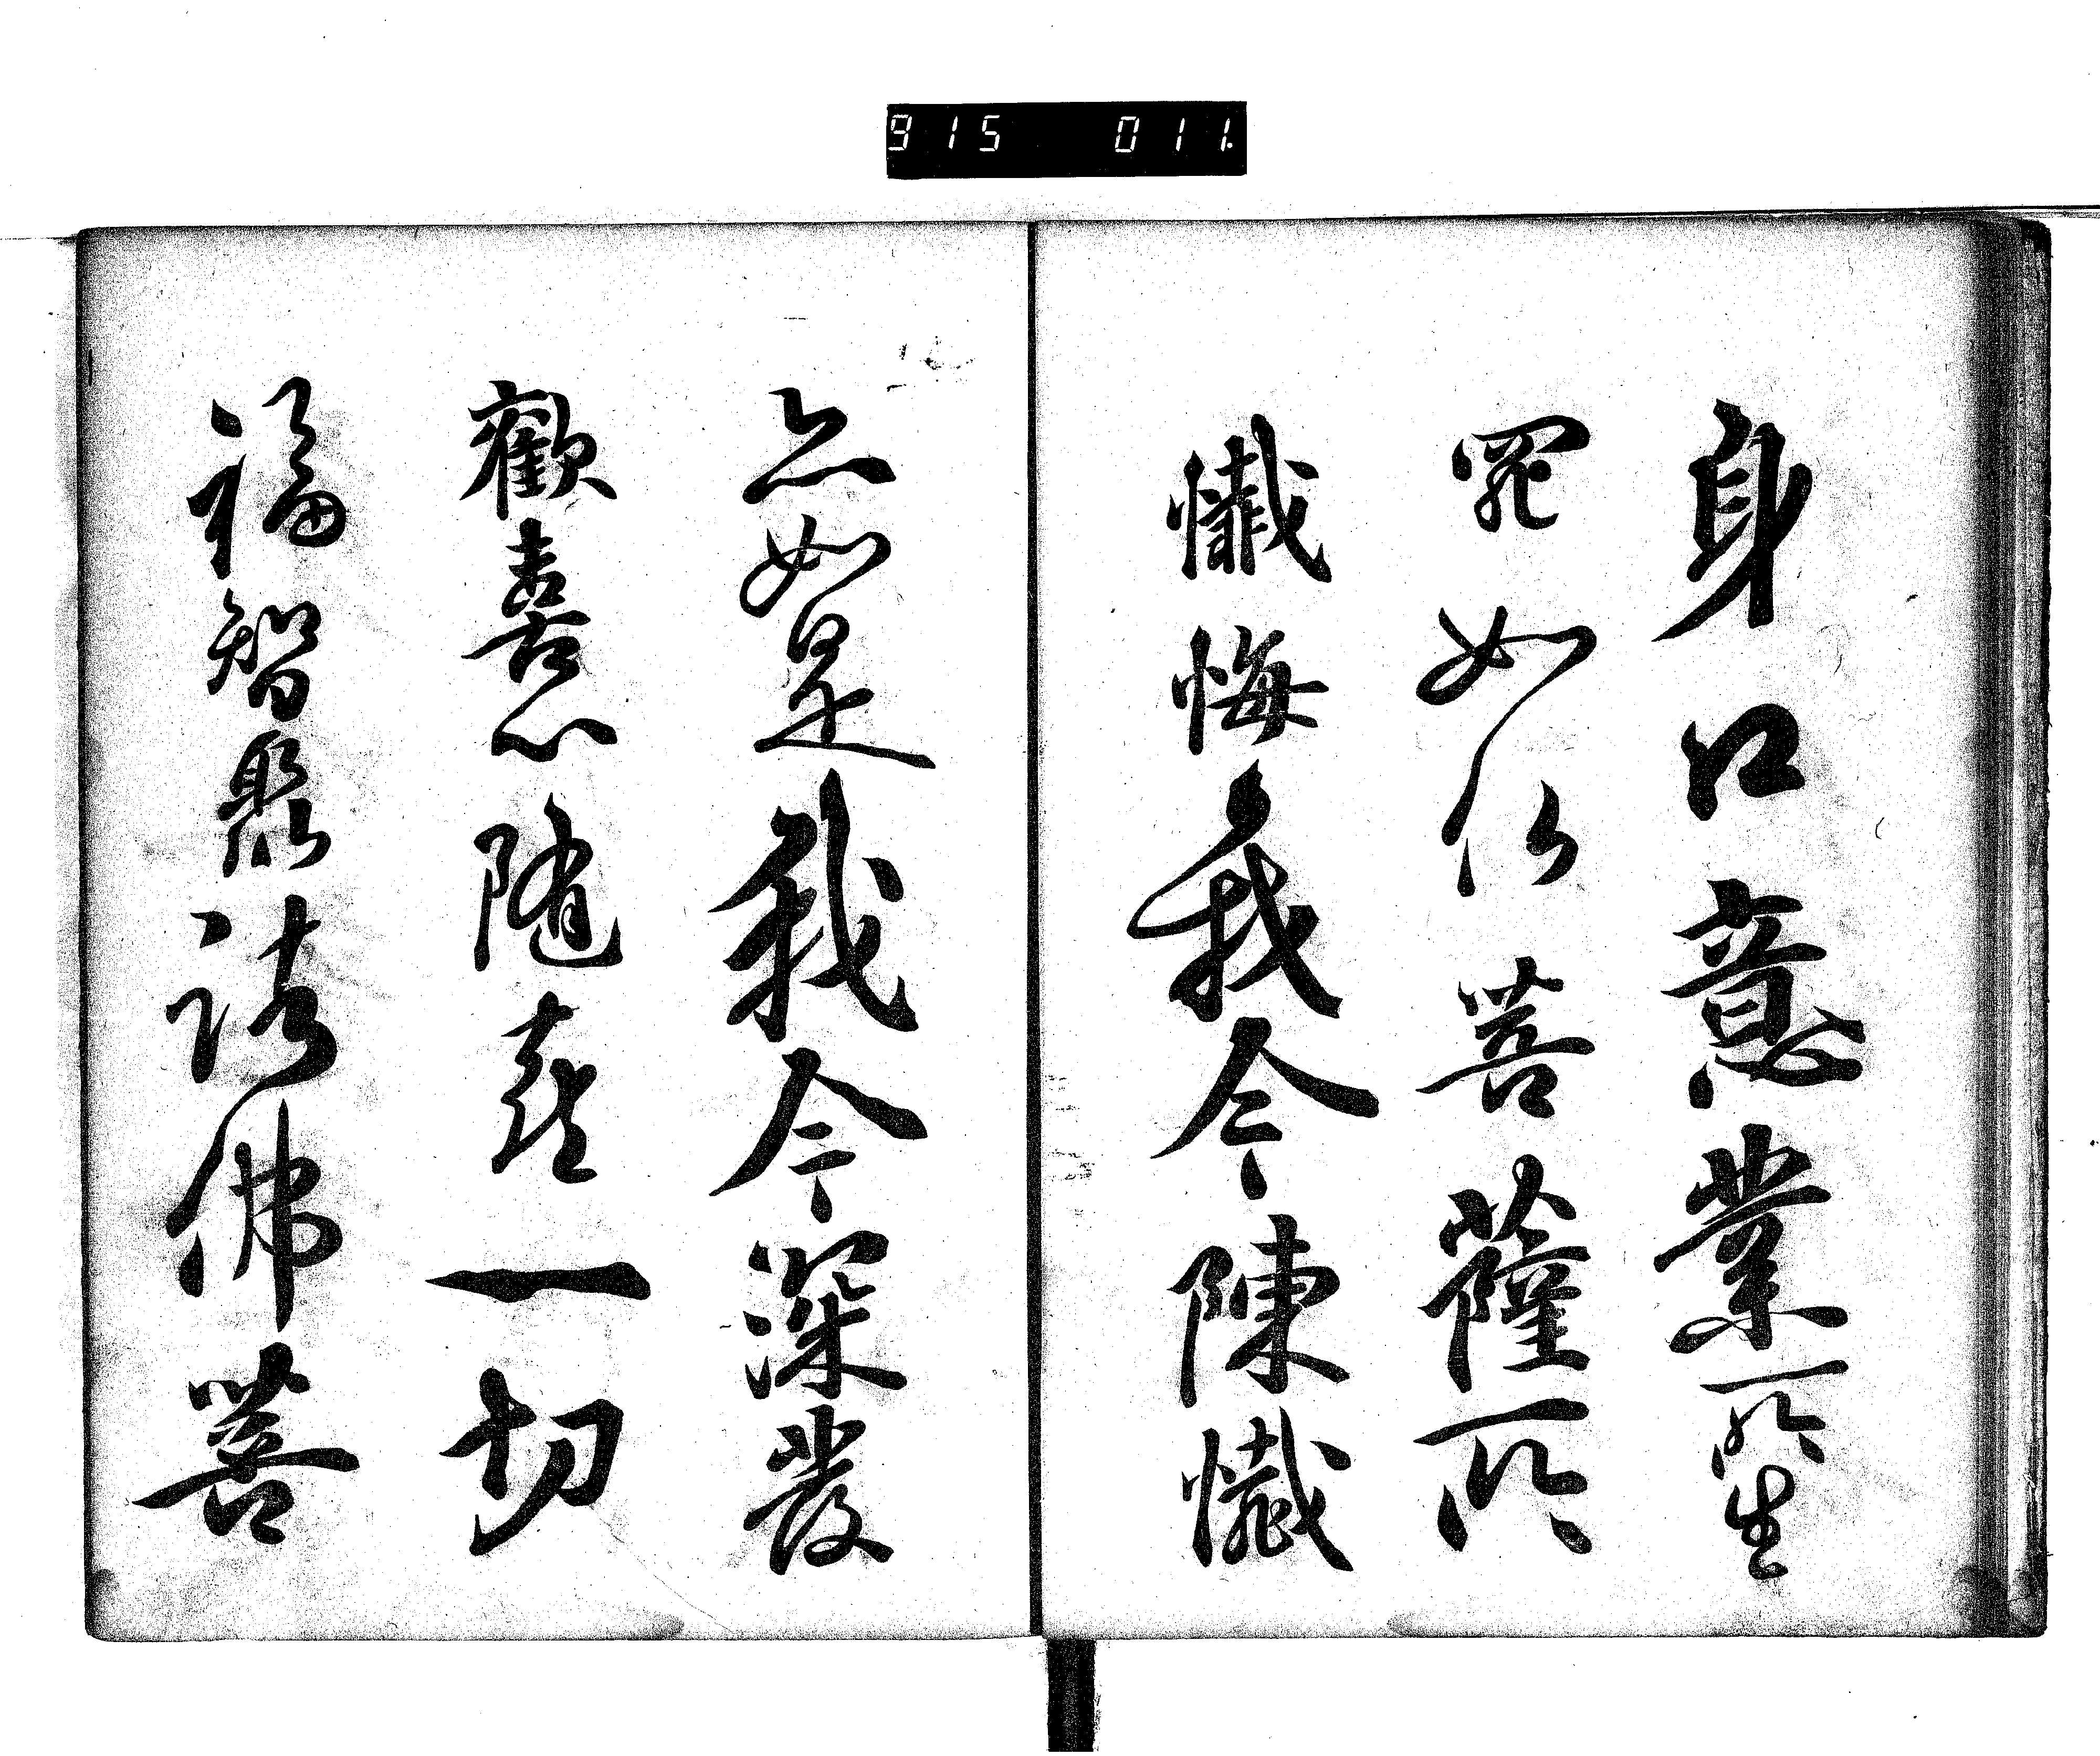 915 011.
身口意業所生
罪如仏菩薩所
懺悔我今陳懺
亦如是我今深發
歡喜心隨喜一切
福智聚諸佛菩